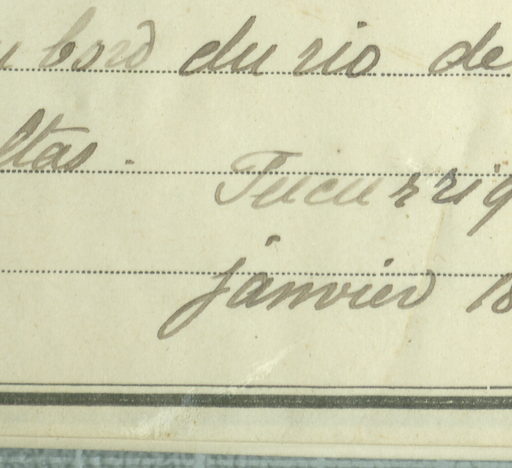 u bord du rio de
ltas.
Tucurriq
janvier 18